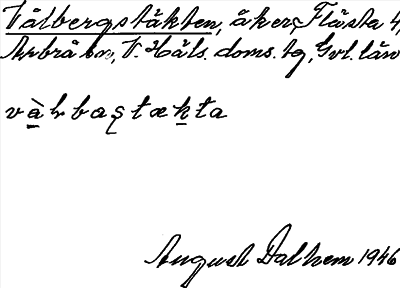 Vålbergstäkten, åker, Flästa 4,
Arbrå sn, V. Häls. doms. tg, Gvl. län
vàḷbaʂtækta
August Dalhem 1946